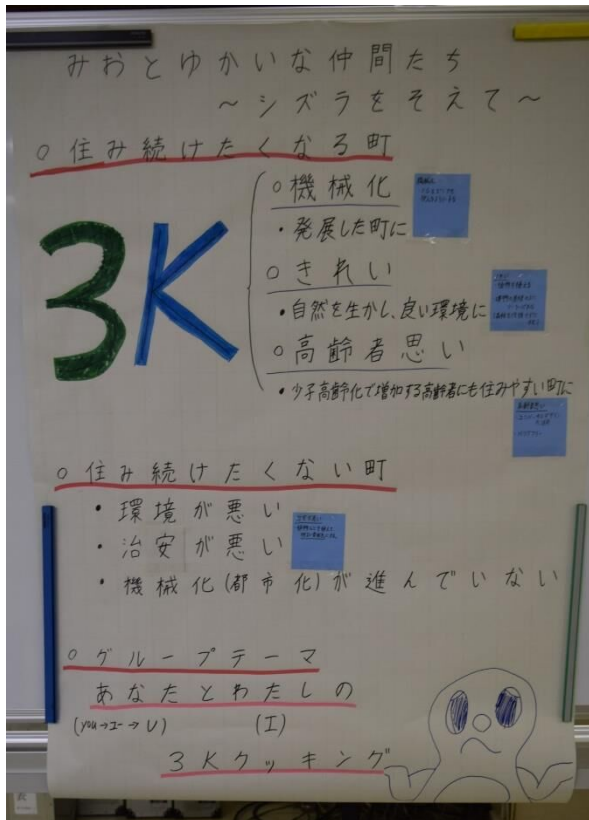 みおとゆかいな仲間たち
～シズラをそえて～
○住み続けたくなる町
3K
○機械化
・発展した町に
○きれい
・自然を生かし、良い環境に
○高齢者思い
・少子高齢化で増加する高齢者にも住みやすい町に
○住み続けたくない町
・環境が悪い
・治安が悪い
・機械化(都市化)が進んでいない
○グループテーマ
あなたとわたしの
(I)
3Kクッキング